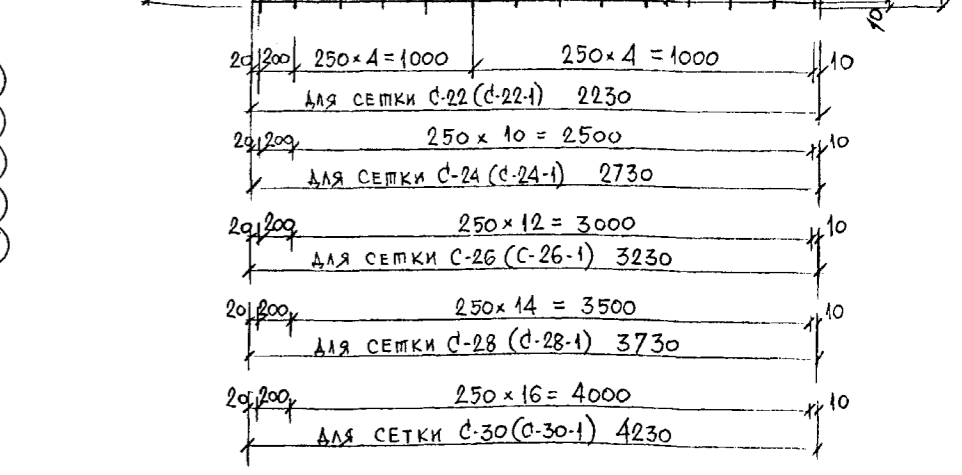 10
20 200 250×4=1000 250×4=1000 10
для сетки С-22 (С-22-1) 2230
20 200 250×10=2500 10
для сетки С-24 (С-24-1) 2730
20 200 250×12=3000 10
для сетки С-26 (С-26-1) 3230
20 200 250×14=3500 10
для сетки С-28 (С-28-1) 3730
20 200 250×16=4000 10
для сетки С-30 (С-30-1) 4230